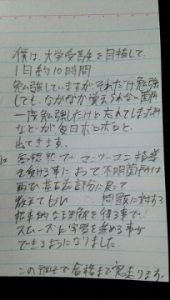 僕は大学受験生を目指して、
1日約10時間
勉強していますがそれだけ勉強
しても、なかなか覚えられない箇所
一度勉強したけど忘れてしまう所
などが毎日ボロボロと
出てきます。
マンツーマン授業
を受ける事によって不明箇所は
再び
教えてもらい 問題に対する
を得る事で、
スムーズに学習を進める事が
できるようになりました。
この調子で合格まで突走ります。